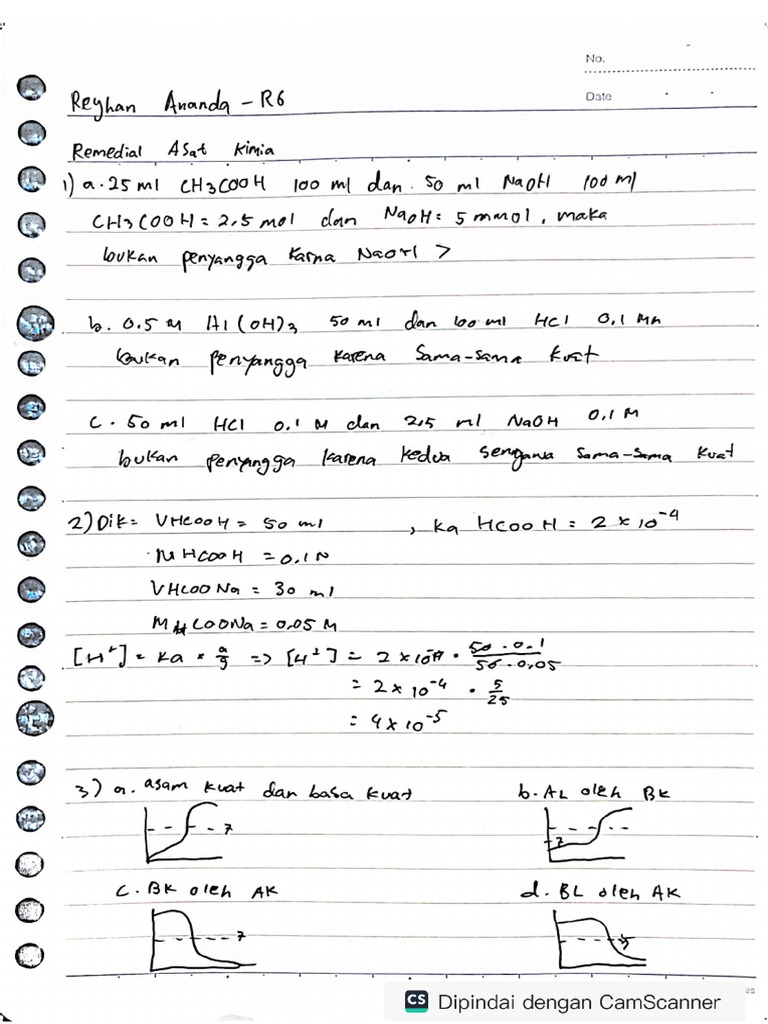 No.
Date
Reyhan Ananda - R6
Remedial ASat Kimia
1) a. 25 ml CH3COOH 100 ml dan 50 ml NaOH 100 ml
CH3COOH = 2,5 mol dan NaOH = 5 mmol, maka
bukan penyangga karna NaOH >
b. 0.5 M Al(OH)3 50 ml dan 100 ml HCl 0.1 M
bukan penyangga karena sama-sama kuat
c. 50 ml HCl 0.1 M dan 25 ml NaOH 0.1 M
bukan penyangga karena kedua sama-sama kuat
2) Dik = VHCOOH = 50 ml , Ka HCOOH = 2 × 10⁻⁴
M HCOOH = 0.1 M
VHCOONa = 30 ml
M HCOONa = 0.05 M
[H⁺] = Ka × a/g => [H⁺] = 2 × 10⁻⁴ · 50 · 0.1 / 50 · 0,05
= 2 × 10⁻⁴ · 5/25
= 4 × 10⁻⁵
3) a. asam kuat dan basa kuat b. AL oleh BK
7 7
c. BK oleh AK d. BL oleh AK
7
CS Dipindai dengan CamScanner